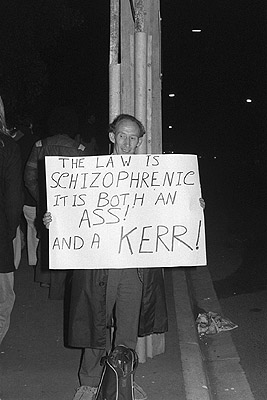 THE LAW IS
SCHIZOPHRENIC
IT IS BOTH AN
ASS!
AND A KERR!